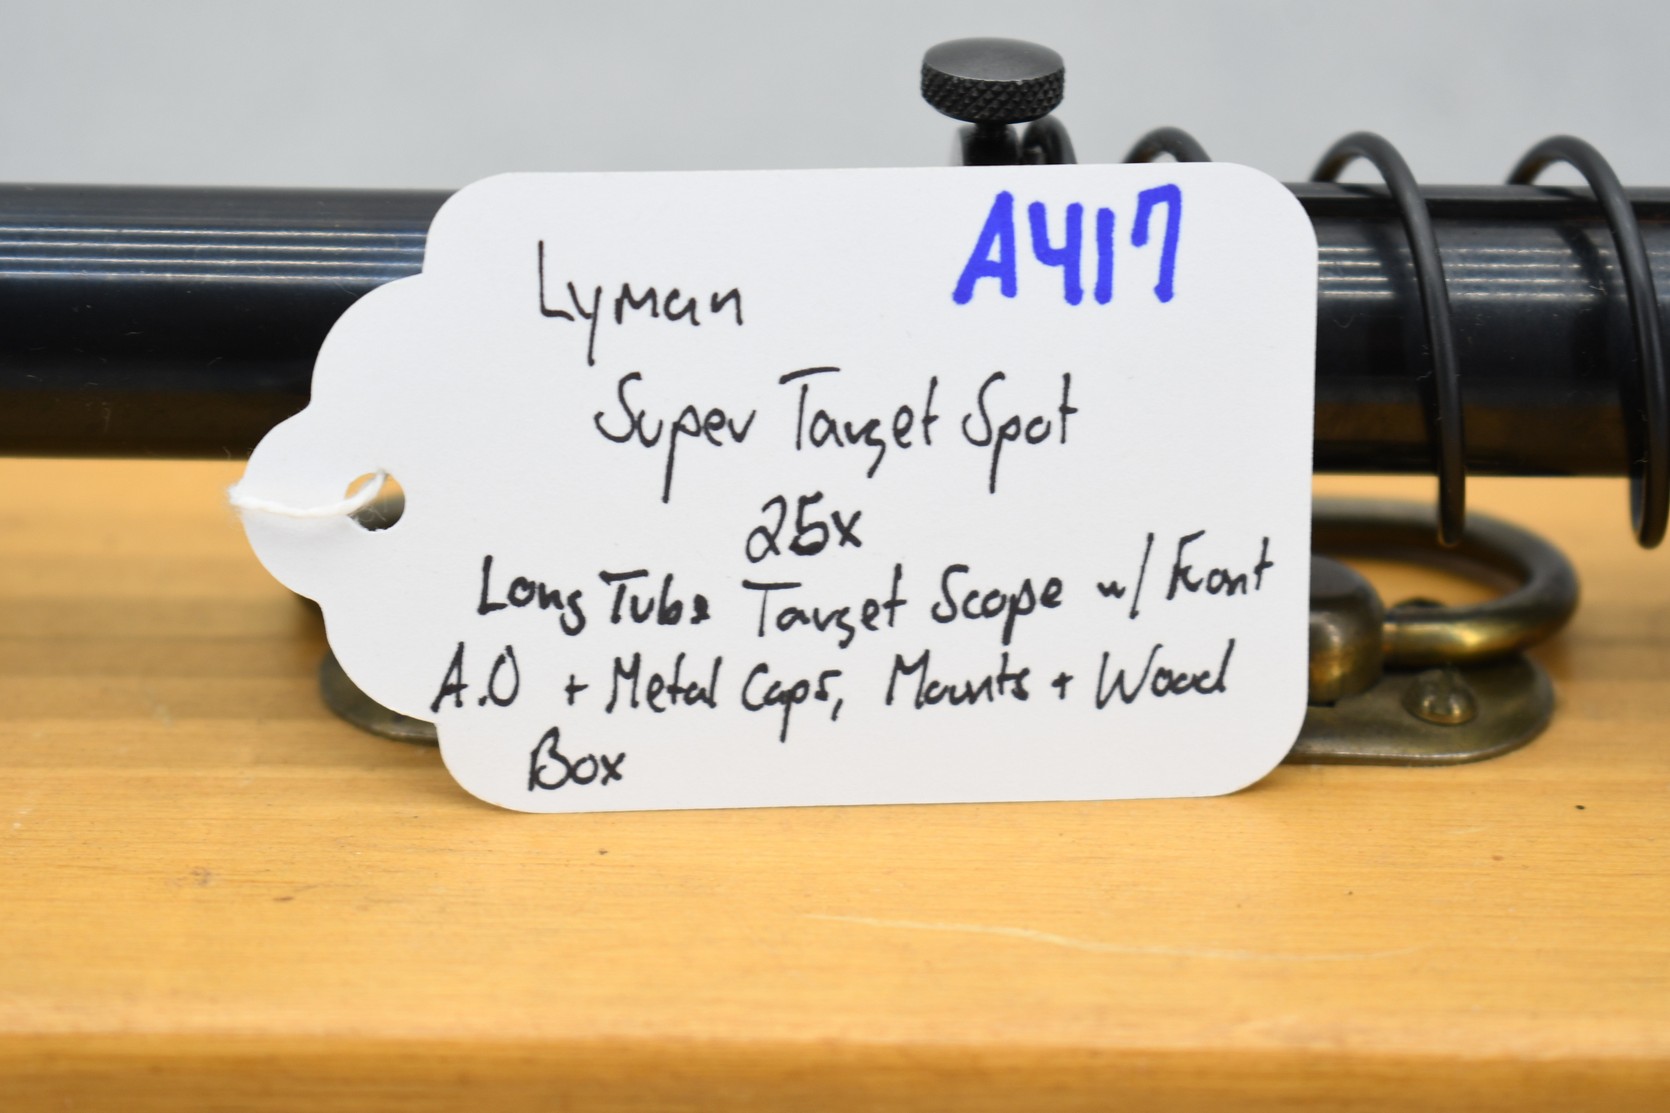 A417
Lyman
Super Target Spot
25x
Long Tube Target Scope w/ Front
A.O + Metal Caps, Mounts + Wood
Box